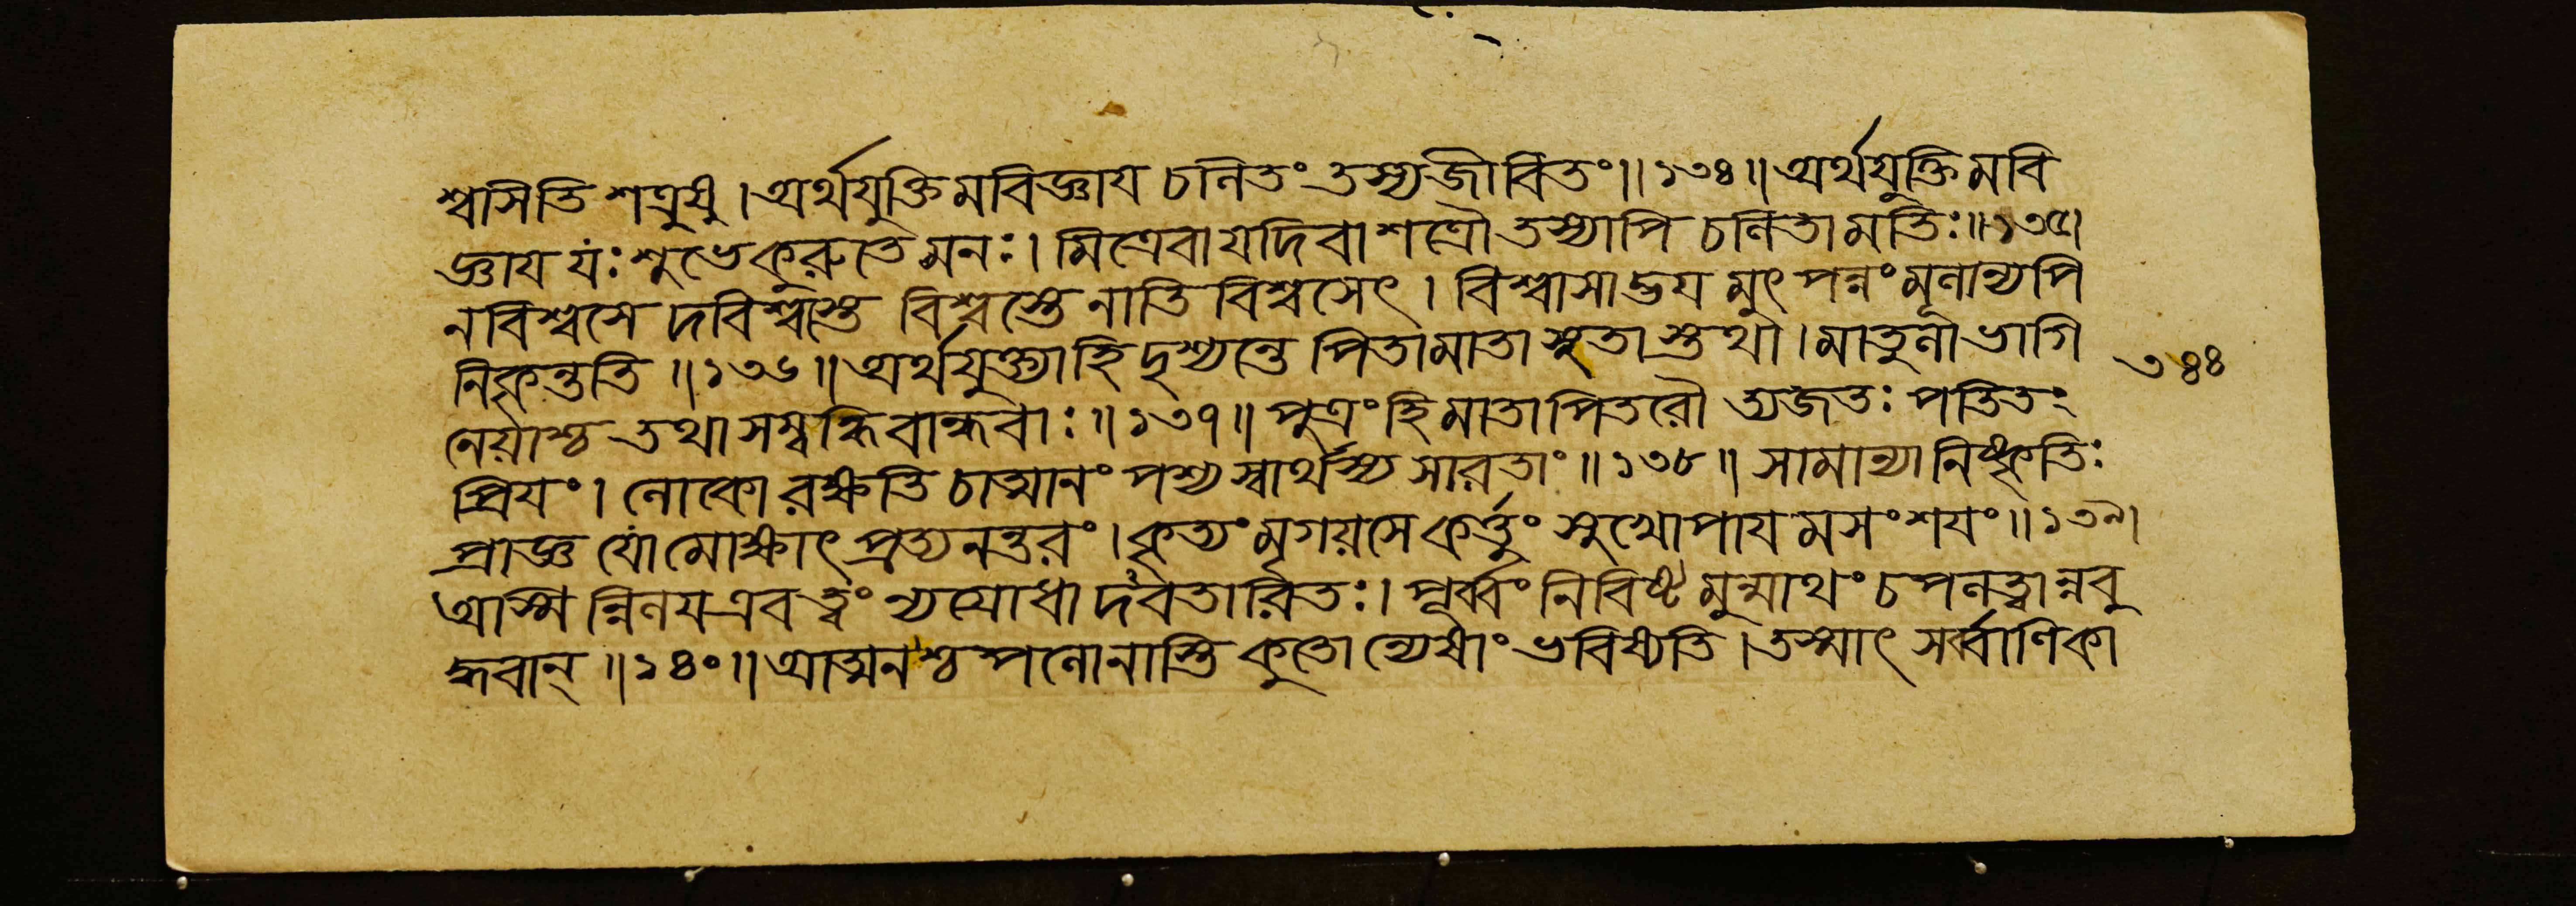 শ্বসিতি শত্রুষু । অর্থযুক্তিমবিজ্ঞায চলিতং তস্যজীবিতং ॥ ১৩৪ ॥ অর্থযুক্তিমবি
জ্ঞায যঃ শুভেকুরুতে মনঃ । মিত্রেবাযদিবাশত্রৌ তস্যাপি চলিতামতিঃ ॥ ১৩৫ ।
নবিশ্বসে দবিশ্বাস্তে বিশ্বস্তে নাতি বিশ্বসেৎ । বিশ্বাসাদ্ভয মুৎপন্নং মূলান্যপি
নিকৃন্ততি ॥ ১৩৬ ॥ অর্থযুক্ত্যাহিদৃশ্যন্তে পিতামাতা সুতাস্তথা । মাতুলাভাগি
৩৪৪
নেয়াশ্চ তথা সম্বন্ধিবান্ধবাঃ ॥ ১৩৭ ॥ পুত্রং হি মাতাপিতরৌ ত্যজতঃ পতিতং
প্রিযং । লোকো রক্ষতি চাত্মানং পশ্য স্বার্থস্য সারতাং ॥ ১৩৮ ॥ সামান্যা নিষ্কৃতিঃ
প্রাজ্ঞ যোমোক্ষাৎ প্রত্যনন্তরং । কৃত্যং মৃগয়সে কর্ত্তুং সুখোপায মসংশযং ॥ ১৩৯ ।
অস্মিন্নিলয এব ত্বং ন্যগ্রোধা দবতারিতঃ । পূর্ব্বং নিবিষ্ট মুন্মাথং চপলত্বান্নবু
দ্ধবান্ ॥ ১৪০ ॥ আত্মনশ্চপলোনাস্তি কুতোন্যেষাং ভবিষ্যতি । তস্মাৎ সর্ব্বাণিকা